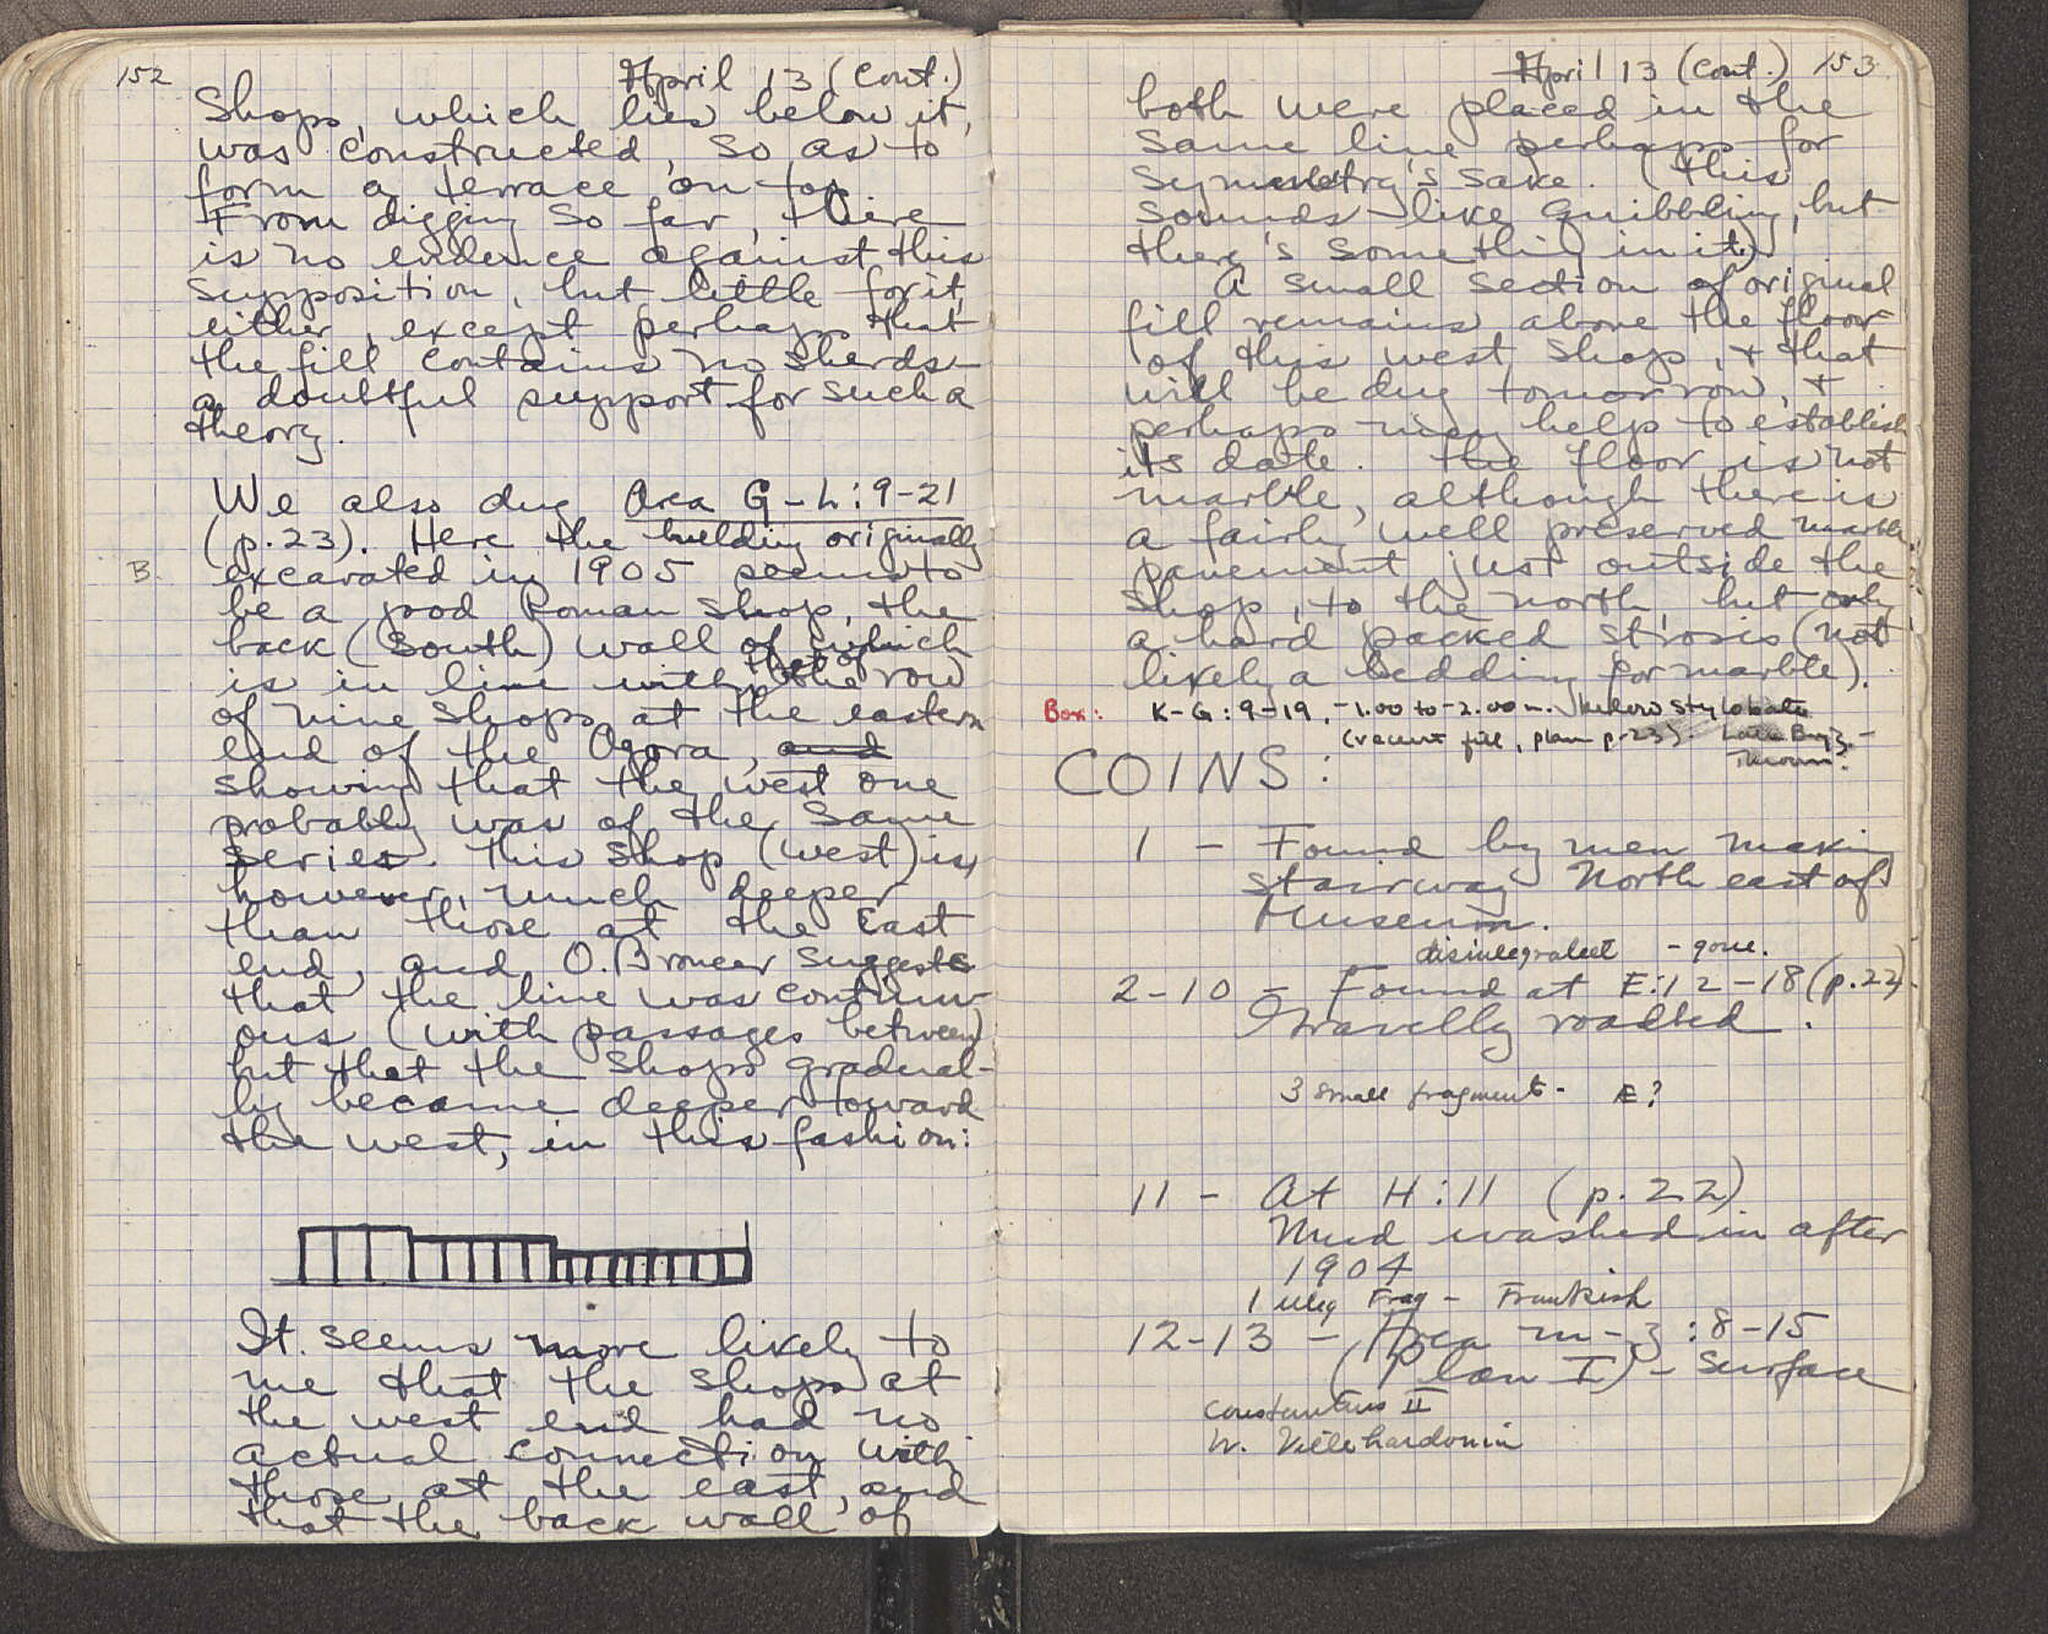 152
April 13 (Cont.)
Shops, which lies below it,
was constructed, so as to
form a terrace on top.
From digging so far, there
is no evidence against this
supposition, but little for it,
either, except perhaps that
the fill contains no sherds –
a doubtful support for such a
theory.
We also dug Area G–L:9–21
(p.23). Here the building originally
B
excavated in 1905 seems to
be a good Roman shop, the
back (south) wall of which
is in line with that of the row
of nine shops at the eastern
end of the Agora, and
showing that the west one
probably was of the same
series. This shop (west) is,
however, much deeper
than those at the East
end, and O. Broneer suggests
that the line was continu-
ous (with passages between)
but that the shops gradual-
ly became deeper toward
the west, in this fashion:
It seems more likely to
me that the shops at
the west end had no
actual connection with
those at the east, and
that the back wall of
April 13 (Cont.) 153
both were placed in the
same line perhaps for
symmetry's sake. (This
sounds like quibbling, but
there's something in it)
A small section of original
fill remains above the floor
of this west shop, + that
will be dug tomorrow, +
perhaps may help to establish
its date. The floor is not
marble, although there is
a fairly well preserved marble
pavement just outside the
shop, to the north, but only
a hard packed strosis (not
likely a bedding for marble).
Box: K–G:9–19, –1.00 to –2.00 m. below stylobate
(recent fill, plan p.23). Late Byz.–
COINS:
1 – Found by men making
stairway North east of
Museum.
disintegrated – gone.
2–10 – Found at E:12–18 (p.22).
Gravelly roadbed.
3 small fragments – Æ?
11 – At H:11 (p.22)
Mud washed in after
1904
1 illeg Frag – Frankish
12–13 – Area m–z:8–15
(Plan I) – surface
Constantius II
W. Villehardouin